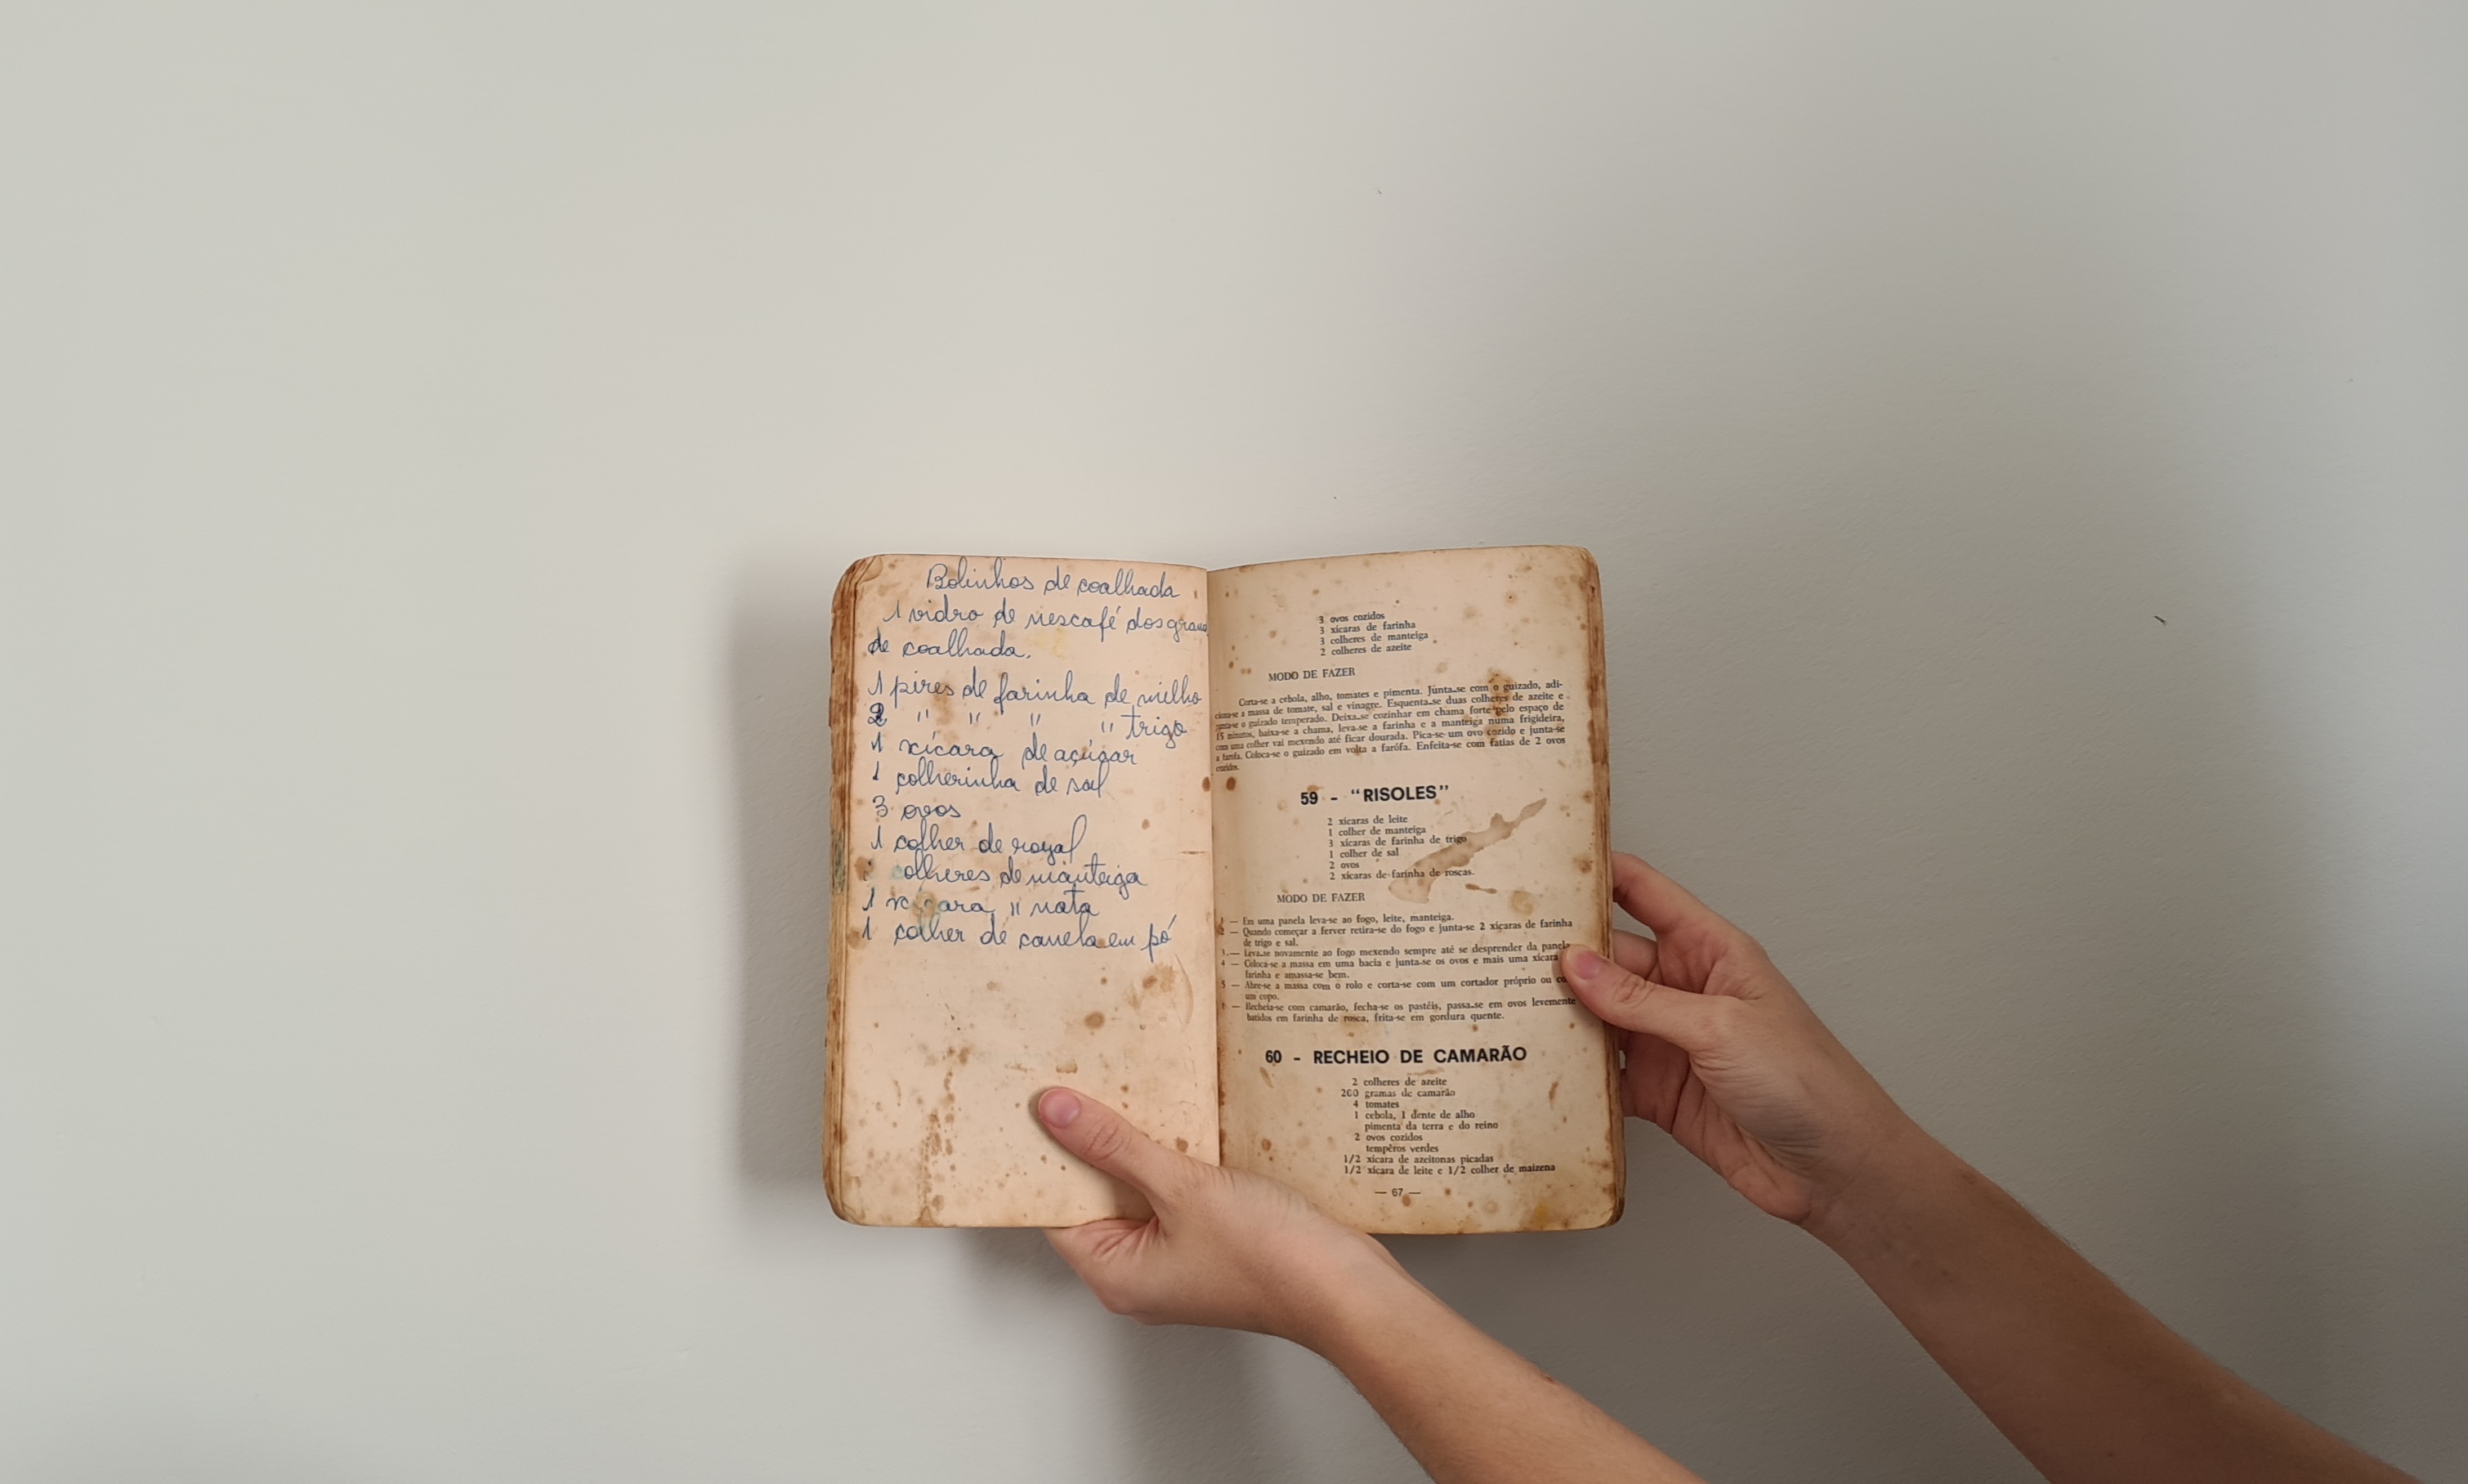 Bolinhos de coalhada
1 vidro de nescafé dos
de coalhada.
1 pires de farinha de milho
2 " " " " trigo
1 xícara de açúcar
1 colherinha de sal
3 ovos
1 colher de royal
colheres de manteiga
1 xícara " nata
1 colher de canela em pó
3 ovos cozidos
3 xícaras de farinha
3 colheres de manteiga
2 colheres de azeite
MODO DE FAZER
Corta-se a cebola, alho, tomates e pimenta. Junta-se com o guizado, adi-
ciona-se a massa de tomate, sal e vinagre. Esquenta-se duas colheres de azeite e
junta-se o guizado temperado. Deixa-se cozinhar em chama forte pelo espaço de
15 minutos, baixa-se a chama, leva-se a farinha e a manteiga numa frigideira,
com uma colher vai mexendo até ficar dourada. Pica-se um ovo cozido e junta-se
a farofa. Coloca-se o guizado em volta a farófa. Enfeita-se com fatias de 2 ovos
cozidos.
59 - "RISOLES"
2 xícaras de leite
1 colher de manteiga
3 xícaras de farinha de trigo
1 colher de sal
2 ovos
2 xícaras de farinha de roscas.
MODO DE FAZER
1 — Em uma panela leva-se ao fogo, leite, manteiga.
2 — Quando começar a ferver retira-se do fogo e junta-se 2 xícaras de farinha
de trigo e sal.
3.— Leva-se novamente ao fogo mexendo sempre até se desprender da panela
4 — Coloca-se a massa em uma bacia e junta-se os ovos e mais uma xícara
farinha e amassa-se bem.
5 — Abre-se a massa com o rolo e corta-se com um cortador próprio ou
um copo.
— Recheia-se com camarão, fecha-se os pastéis, passa-se em ovos levemente
batidos em farinha de rosca, frita-se em gordura quente.
60 - RECHEIO DE CAMARÃO
2 colheres de azeite
200 gramas de camarão
4 tomates
1 cebola, 1 dente de alho
pimenta da terra e do reino
2 ovos cozidos
tempêros verdes
1/2 xícara de azeitonas picadas
1/2 xícara de leite e 1/2 colher de maizena
— 67 —